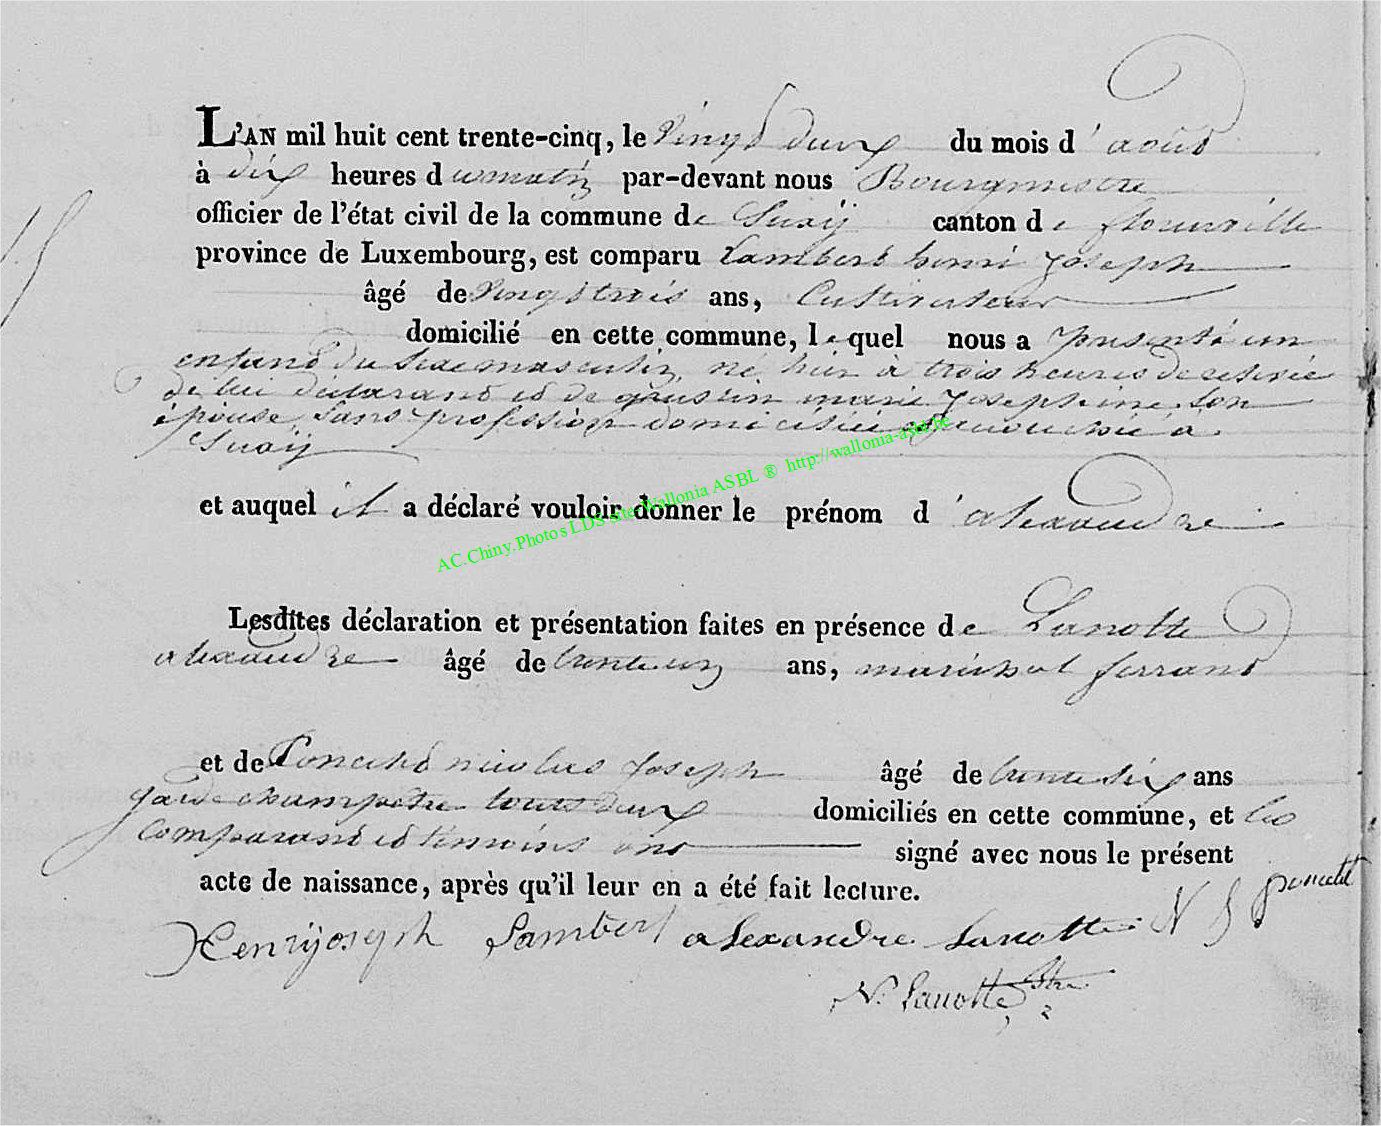 L'AN mil huit cent trente-cinq, le vingt deux du mois d'août
à dix heures du matin par-devant nous Bourgmestre
officier de l'état civil de la commune de Suxÿ canton de florenville
province de Luxembourg, est comparu Lambert henri Joseph
âgé de vingt trois ans, Cultivateur
domicilié en cette commune, lequel nous a présenté un
enfant du sexe masculin, né hier à trois heures de relevée
de lui déclarant et de marie Josephine son
épouse, sans profession domiciliée et accouchée à
Suxÿ
et auquel il a déclaré vouloir donner le prénom d'alexandre
AC.Chiny.Photos LDS site-Wallonia ASBL ® http://wallonia-asbl.be
Lesdites déclaration et présentation faites en présence de Lanotte
alexandre âgé de trente un ans, maréchal ferrant
et de Poncelet nicolas Joseph âgé de trente six ans
garde champetre touts deux domiciliés en cette commune, et les
Comparant et témoins ont signé avec nous le présent
acte de naissance, après qu'il leur en a été fait lecture.
Henry joseph Lambert alexandre Lanotte N J poncelet
N. Lanotte, Btre